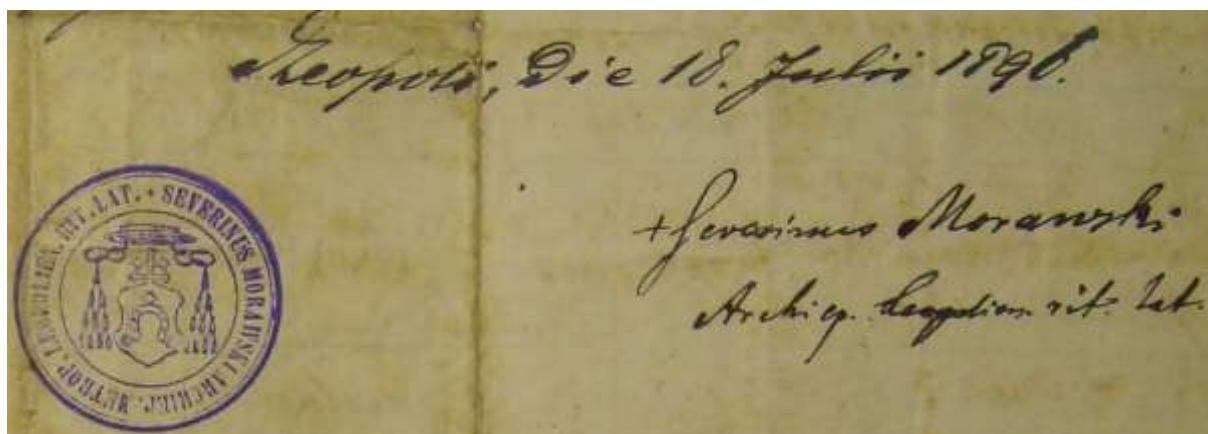 Leopoli, Die 18. Julii 1896.
SEVERINUS MORAWSKI ARCHIEP. METROP. LEOPOLIEN. RIT. LAT.
+ Severinus Morawski
Archiep. Leopolien. rit. lat.